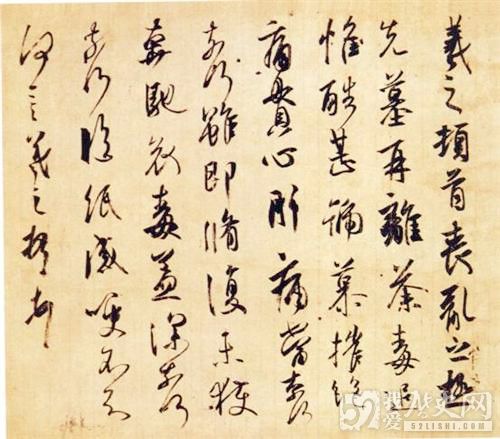 羲之頓首喪亂之極
先墓再離荼毒追
惟酷甚號慕摧絕
痛貫心肝痛當奈何
奈何雖即脩復未獲
奔馳哀毒益深奈何
奈何臨紙感哽不知
何言羲之頓首頓首
我爱历史网
52LISHI.COM